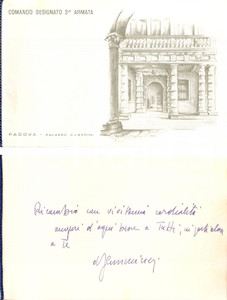 COMANDO DESIGNATO 3ª ARMATA
PADOVA - PALAZZO
Ricambio con vivissima cordialità
auguri d'ogni bene a Tutti, in particolare
a Te